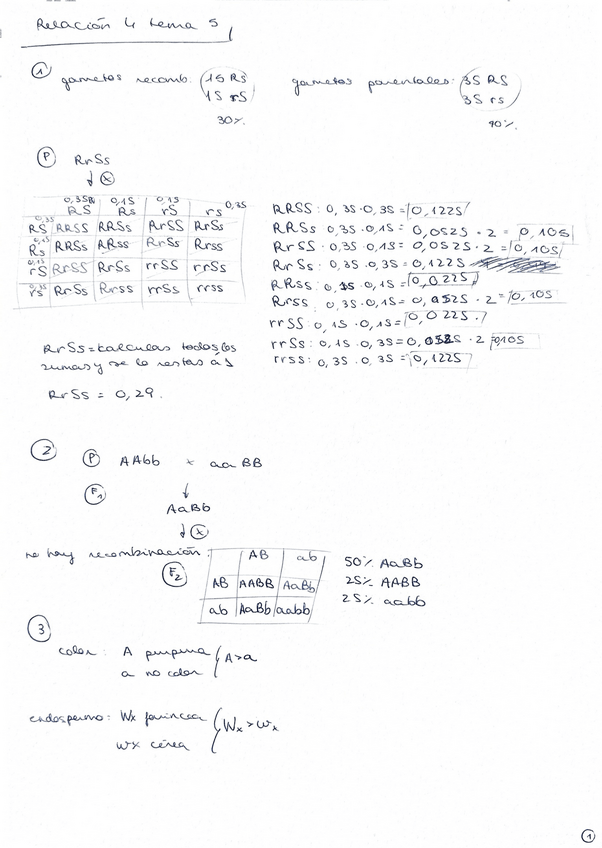 Relación 4 tema 5
① gametos recomb: 15 RS gametos parentales: 35 RS
15 rS 35 rs
30% 70%
Ⓟ RrSs
↓ ⊗
0,35 RS 0,15 Rs 0,15 rS 0,35 rs
0,35 RS RRSS RRSs RrSS RrSs
0,15 Rs RRSs RRss RrSs Rrss
0,15 rS RrSS RrSs rrSS rrSs
0,35 rs RrSs Rrss rrSs rrss
RRSS: 0,35·0,35=0,1225
RRSs 0,35·0,15= 0,0525·2=0,105
RrSS: 0,35·0,15=0,0525·2=0,105
RrSs: 0,35·0,35=0,1225
RRss: 0,15·0,15=0,0225
Rrss: 0,35·0,15=0,0525·2=0,105
rrSS: 0,15·0,15=0,0225
rrSs: 0,15·0,35=0,0525·2 0,105
rrss: 0,35·0,35=0,1225
RrSs=calculas todos los
sumas y se lo restas a 1
RrSs = 0,29.
② Ⓟ AAbb x aaBB
F₁ ↓
AaBb
↓ ⊗
no hay recombinación:
F₂
AB ab
AB AABB AaBb
ab AaBb aabb
50% AaBb
25% AABB
25% aabb
③
color: A purpura A>a
a no color
endospermo: Wx Wx>wx
wx cérea
1